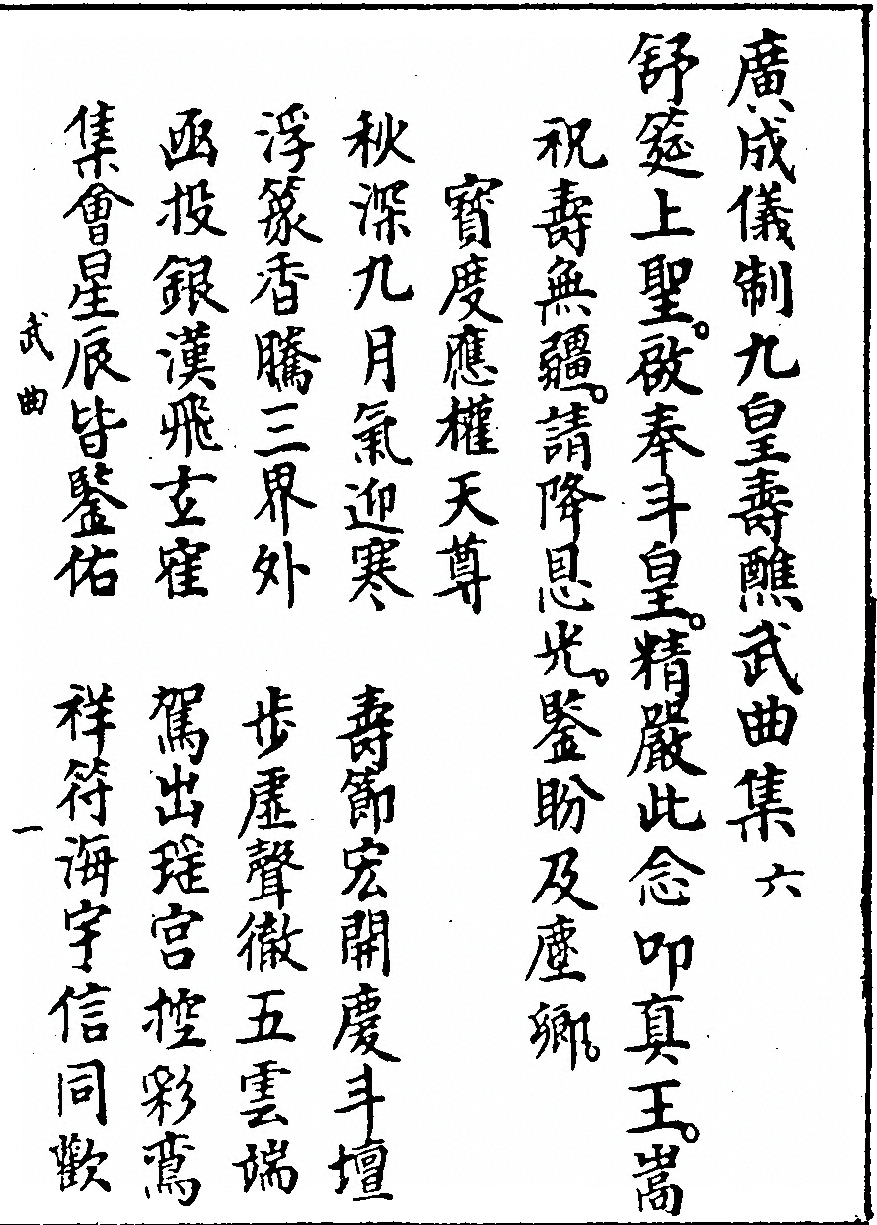 廣成儀制九皇壽醮武曲集六
舒筵上聖。啟奉斗皇。精嚴此念叩真王。嵩
祝壽無疆。請降恩光。鑒盼及塵鄉。
寶度應權天尊
秋深九月氣迎寒　壽節宏開慶斗壇
浮篆香騰三界外　步虛聲徹五雲端
函投銀漢飛玄寉　駕出瑤宮控彩鸞
集會星辰皆鑒佑　祥符海宇信同歡
武曲　一